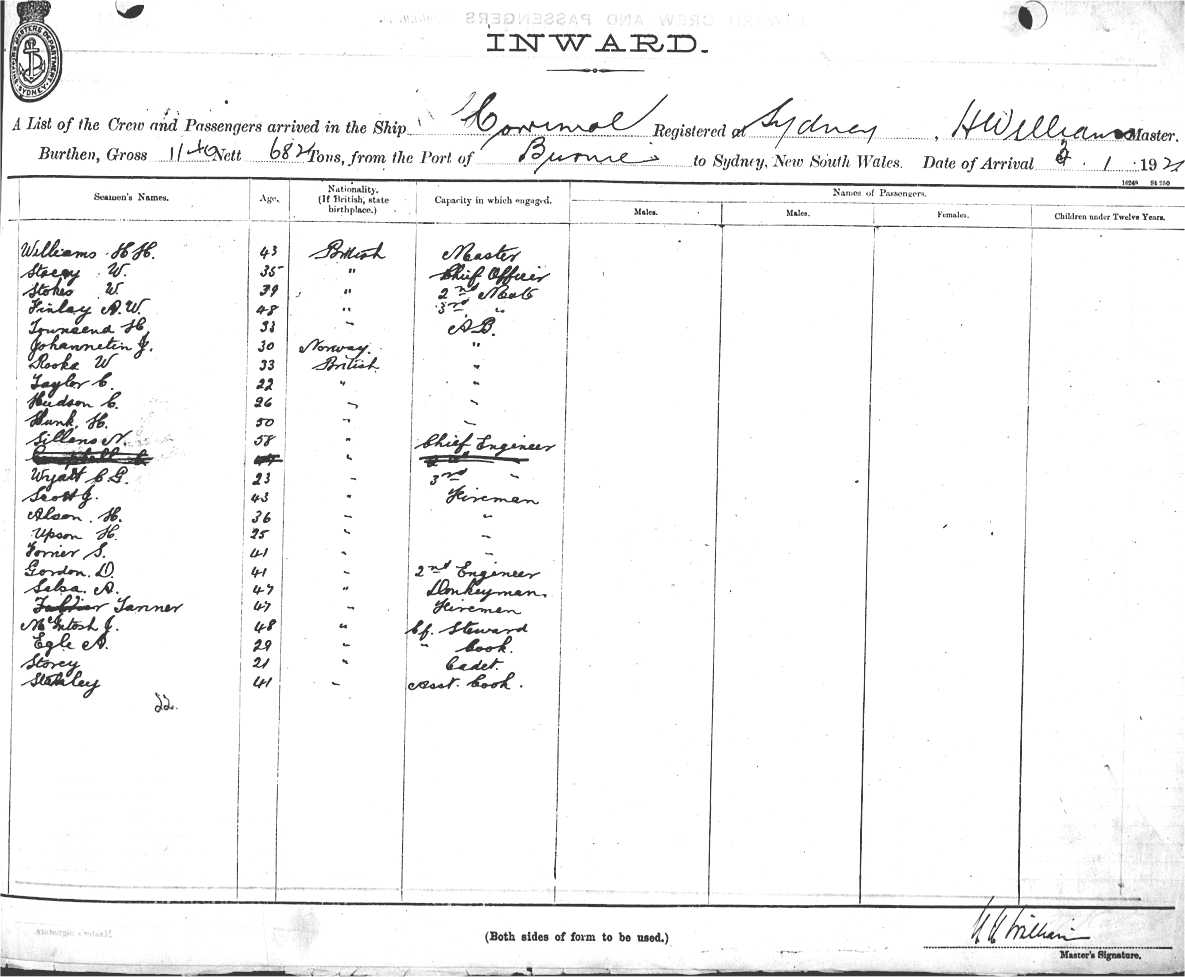 SHIPPING MASTERS DEPARTMENT SYDNEY
INWARD.
A List of the Crew and Passengers arrived in the Ship Corrimal Registered at Sydney, H Williams Master.
Burthen, Gross 1140 Nett 682 Tons, from the Port of Burnie to Sydney, New South Wales. Date of Arrival 1 192
Seamen's Names. Age. Nationality. (If British, state birthplace.) Capacity in which engaged. Names of Passengers.
Males. Males. Females. Children under Twelve Years.
Williams H H. 43 British Master
Stacey W. 35 " Chief Officer
Stokes W. 39 " 2nd Mate
Finlay A. W. 48 " 3rd "
Townsend H. 33 " A B.
J. 30 Norway. "
Rooke W 33 British "
Taylor C. 22 " "
Hudson C. 26 " "
Hunk, H. 50 " "
Sillens N. 58 " Chief Engineer
Wyatt C G. 23 " 3rd "
Scott J. 43 " Fireman
Alson. H. 36 " "
Upson H. 25 " "
S. 41 " "
Gordon. D. 41 " 2nd Engineer
Selsa. A. 47 " Donkeyman.
Tanner 47 " Firemen
McIntosh J. 48 " Cf. Steward
Egle A. 29 " " Cook.
Storey 21 " Cadet.
41 " Asst. Cook.
22.
(Both sides of form to be used.)
H H William
Master's Signature.